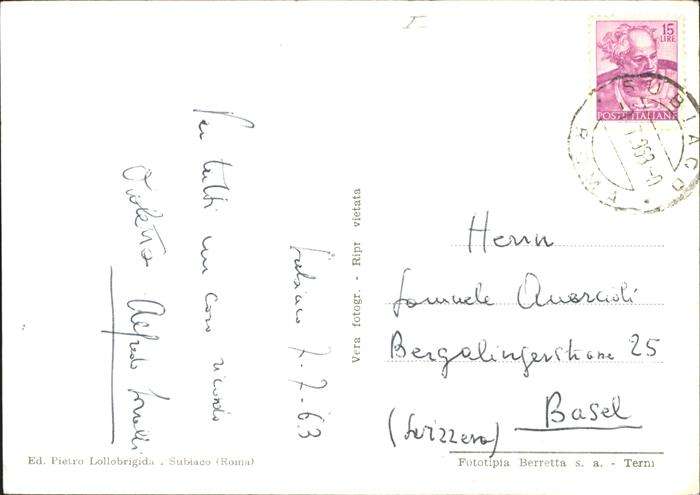 15
LIRE
POSTE ITALIANE
SUBIACO
Subiaco 7-7-63
Per tutti un caro ricordo
Violetta Alfredo
Vera fotogr. - Ripr vietata
Herrn
Samuele
Bergalingerstrasse 25
Basel
(Svizzera)
Ed. Pietro Lollobrigida . Subiaco (Roma)
Fototipia Berretta s. a. - Terni